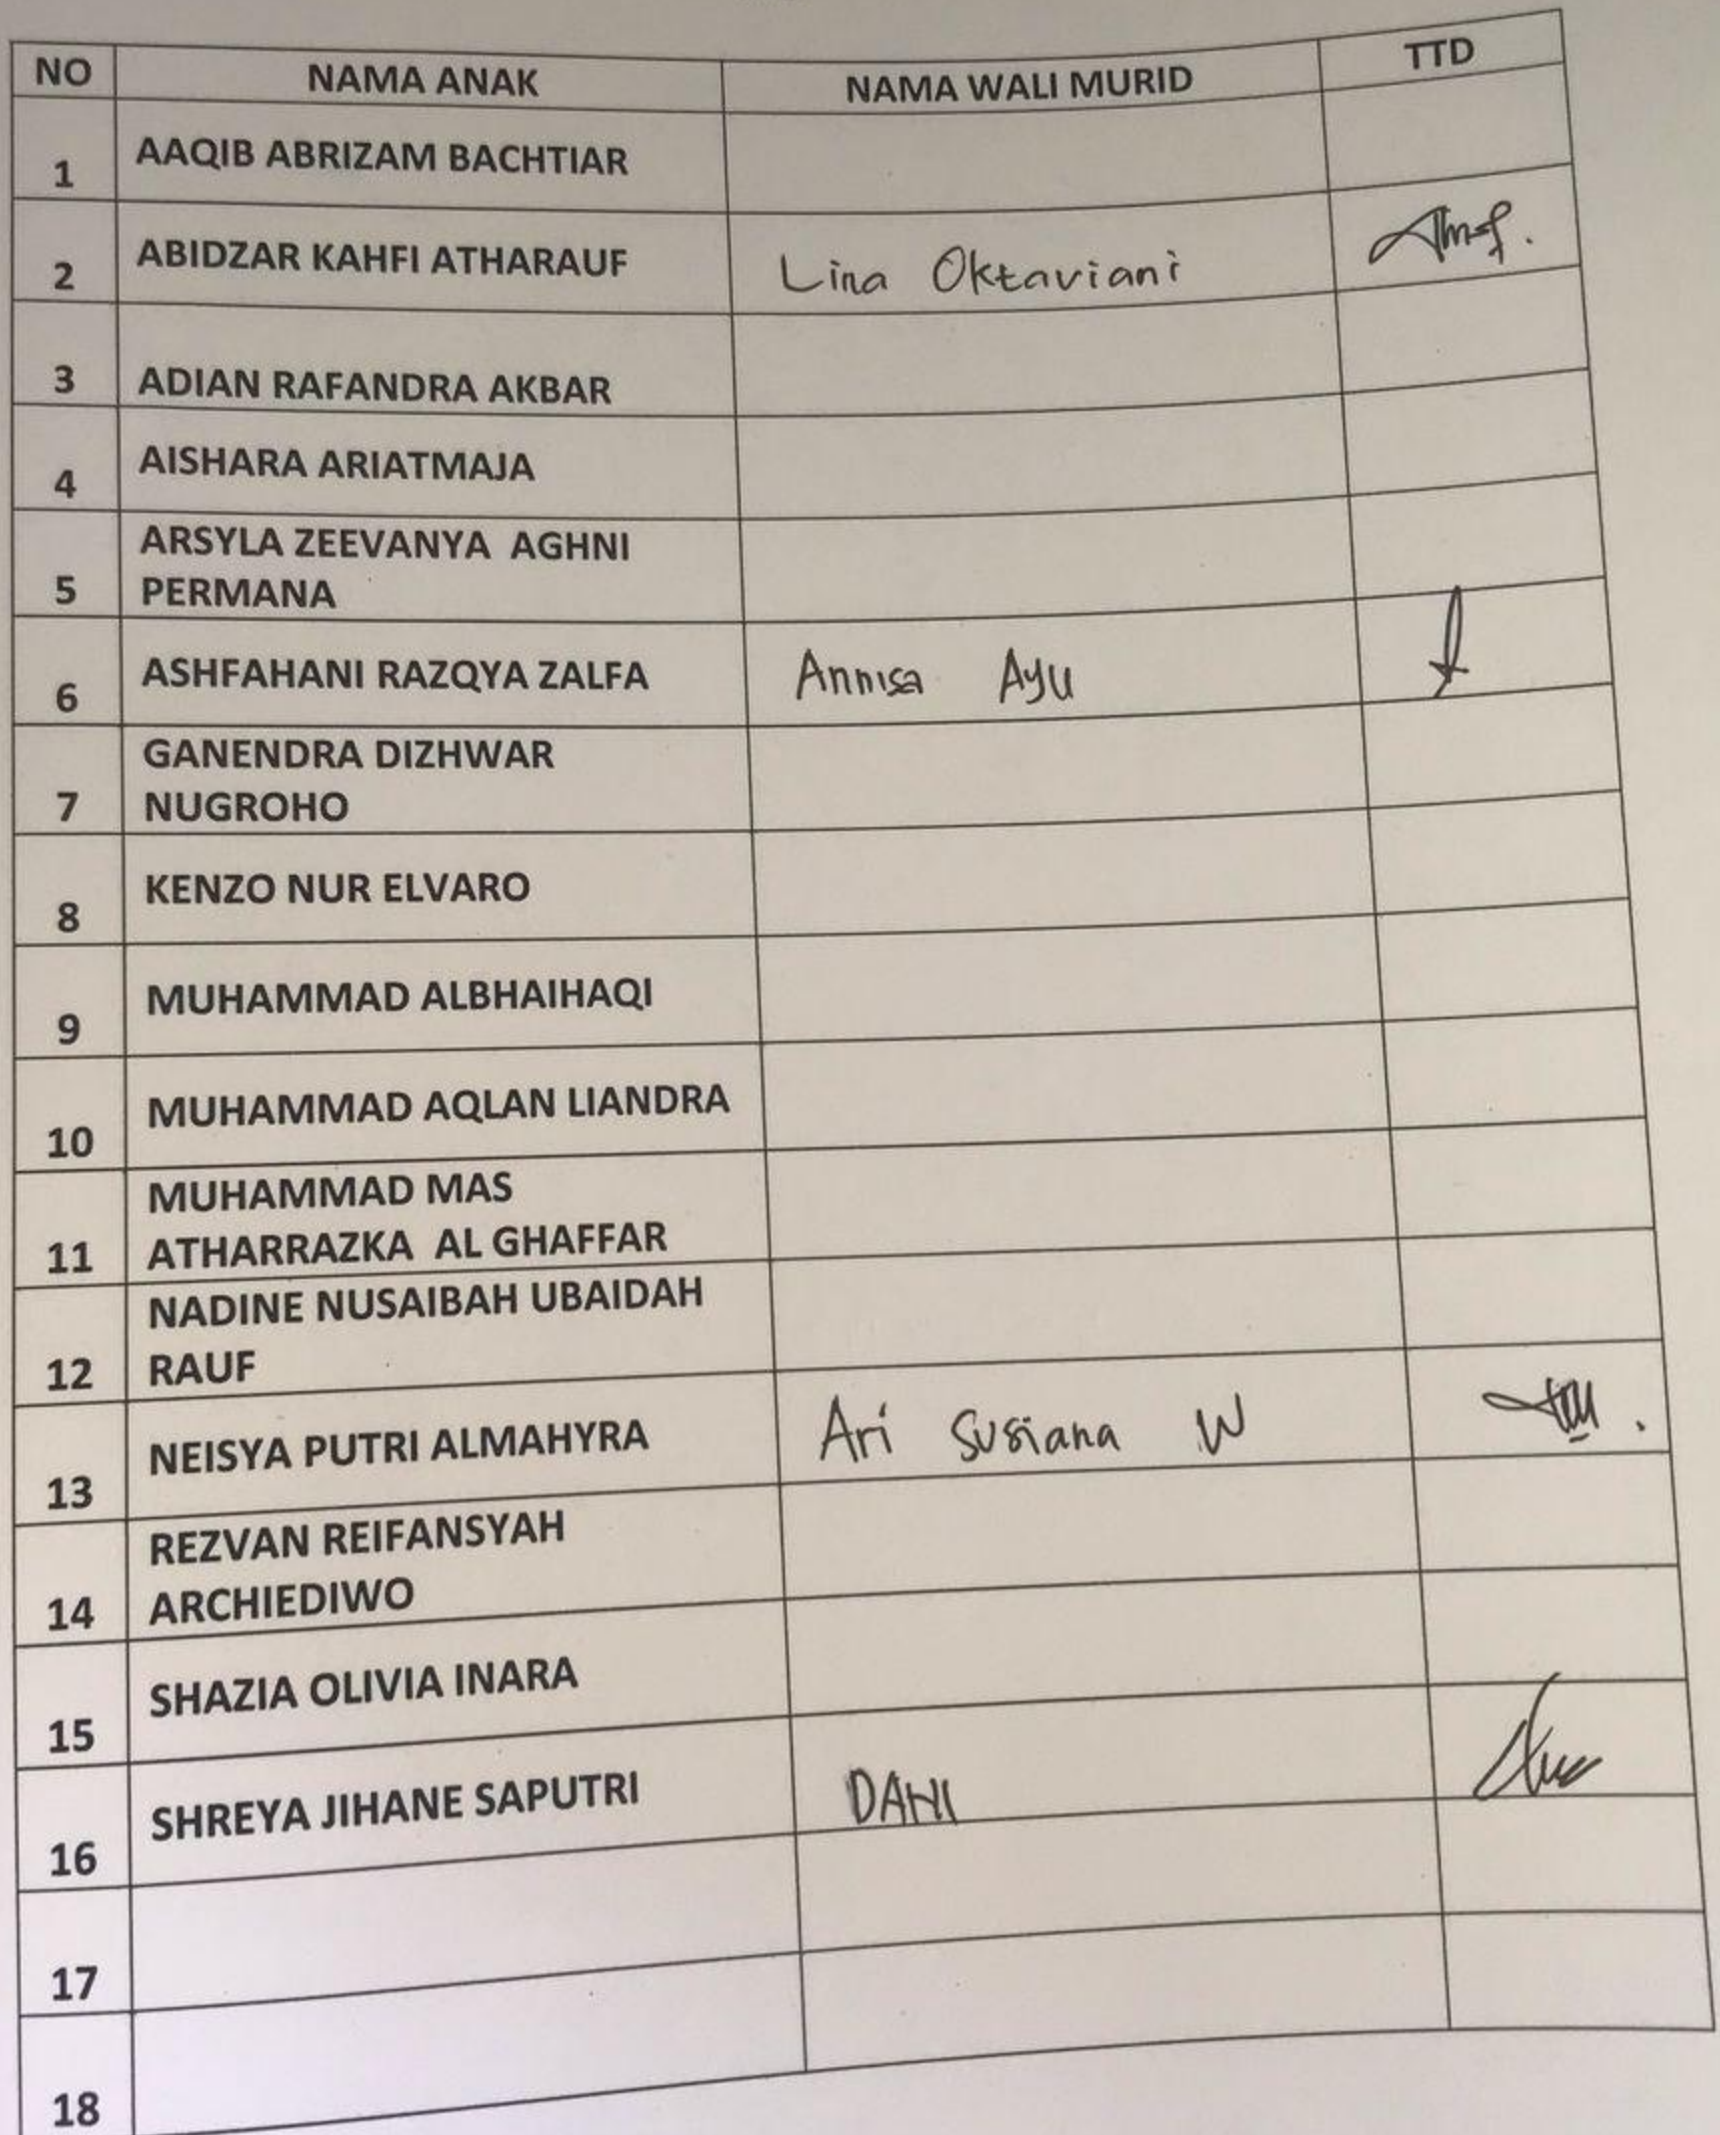 NO NAMA ANAK NAMA WALI MURID TTD
1 AAQIB ABRIZAM BACHTIAR
2 ABIDZAR KAHFI ATHARAUF Lina Oktaviani
3 ADIAN RAFANDRA AKBAR
4 AISHARA ARIATMAJA
ARSYLA ZEEVANYA AGHNI
5 PERMANA
6 ASHFAHANI RAZQYA ZALFA Annisa Ayu
GANENDRA DIZHWAR
7 NUGROHO
8 KENZO NUR ELVARO
9 MUHAMMAD ALBHAIHAQI
10 MUHAMMAD AQLAN LIANDRA
MUHAMMAD MAS
11 ATHARRAZKA AL GHAFFAR
NADINE NUSAIBAH UBAIDAH
12 RAUF
13 NEISYA PUTRI ALMAHYRA Ari Susiana W
REZVAN REIFANSYAH
14 ARCHIEDIWO
15 SHAZIA OLIVIA INARA
16 SHREYA JIHANE SAPUTRI DANI
17
18